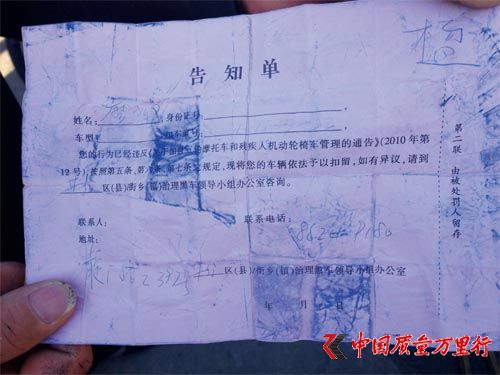 告知单
姓名: 身份证号:
车型: 车牌号:
您的行为已经违反《 摩托车和残疾人机动轮椅车管理的通告》(2010年第
12号)按照第五条、第六条、第七条之规定,现将您的车辆依法予以扣留,如有异议,请到
区(县)/街乡(镇)治理黑车领导小组办公室咨询。
联系人: 联系电话:
地址:
区(县)/街乡(镇)治理黑车领导小组办公室
年 月 日
第二联 由被处罚人留存
中国质量万里行